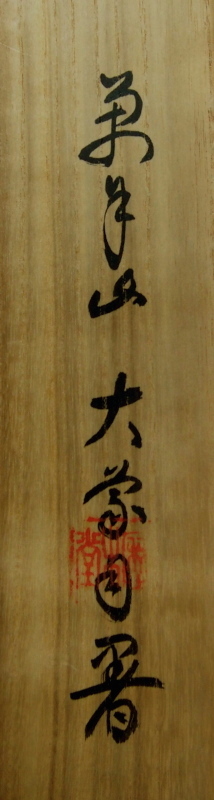 萬年山 大象自署